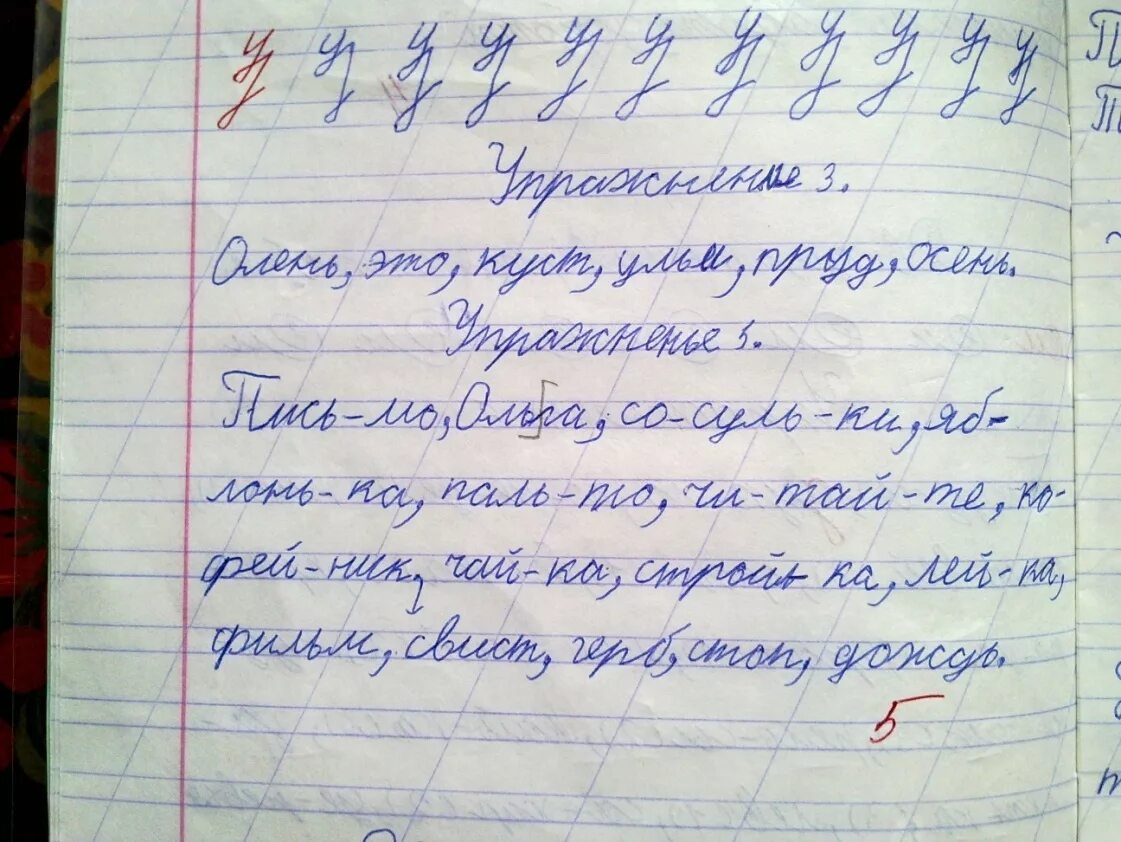 у у у у у у у у у у у
Упражнение 3.
Олень, это, куст, ульи, пруд, осень.
Упражненье 3.
Пись-мо, Ольга, со-суль-ки, яб-
лонь-ка, паль-то, чи-тай-те, ко-
фей-ник, чай-ка, строй-ка, лей-ка,
фильм, свист, герб, стоп, дождь.
5